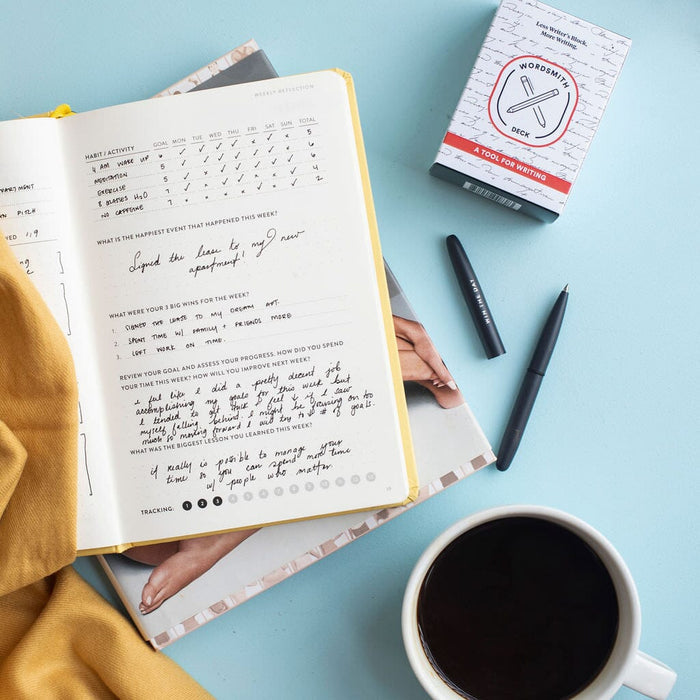 Less Writer's Block,
More Writing.
WORDSMITH
DECK
A TOOL FOR WRITING
WIN THE DAY
WEEKLY REFLECTION
HABIT / ACTIVITY GOAL MON TUE WED THU FRI SAT SUN TOTAL
4 AM WAKE UP 6 5
MEDITATION 5 6
EXERCISE 5 6
NO CAFFEINE 7 2
WHAT IS THE HAPPIEST EVENT THAT HAPPENED THIS WEEK?
Signed the lease to my new
apartment!
WHAT WERE YOUR 3 BIG WINS FOR THE WEEK?
1. SIGNED THE LEASE TO MY DREAM APT.
2. SPENT TIME W/ FAMILY + FRIENDS MORE
3. LEFT WORK ON TIME.
REVIEW YOUR GOAL AND ASSESS YOUR PROGRESS. HOW DID YOU SPEND
YOUR TIME THIS WEEK? HOW WILL YOU IMPROVE NEXT WEEK?
i feel like I did a pretty decent job
accomplishing my goals for this week but
I tended to get stuck & feel if I saw
myself falling behind. I might be focusing on too
much so moving forward I will try to # of goals.
WHAT WAS THE BIGGEST LESSON YOU LEARNED THIS WEEK?
it really is possible to manage your
time so you can spend more time
w/ people who matter.
TRACKING: 1 2 3 4 5 6 7 8 9 10 11 12 13
PARTMENT
PITCH